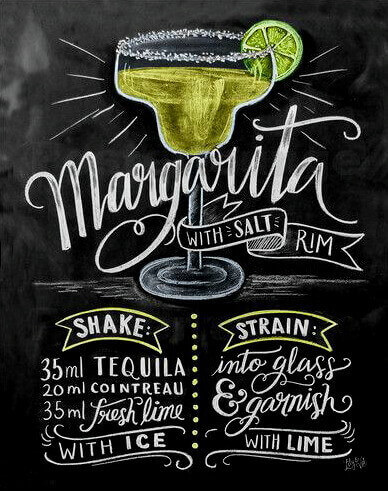 Margarita
WITH SALT RIM
SHAKE:
35ml TEQUILA
20ml COINTREAU
35ml fresh lime
WITH ICE
STRAIN:
into glass
& garnish
WITH LIME